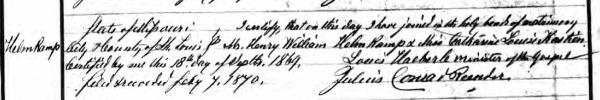 State of Missouri I certify, that on this day I have joined in the holy bonds of matrimony
Helmkamp City & County of St Louis Mr. Henry William Helmkamp & Miss Catharine Louise
Certified by me this 18th day of Septbr. 1869. Louis Haeberle minister of the Gospel
filed & recorded Feby 7. 1870. Julius Conrad Recorder.